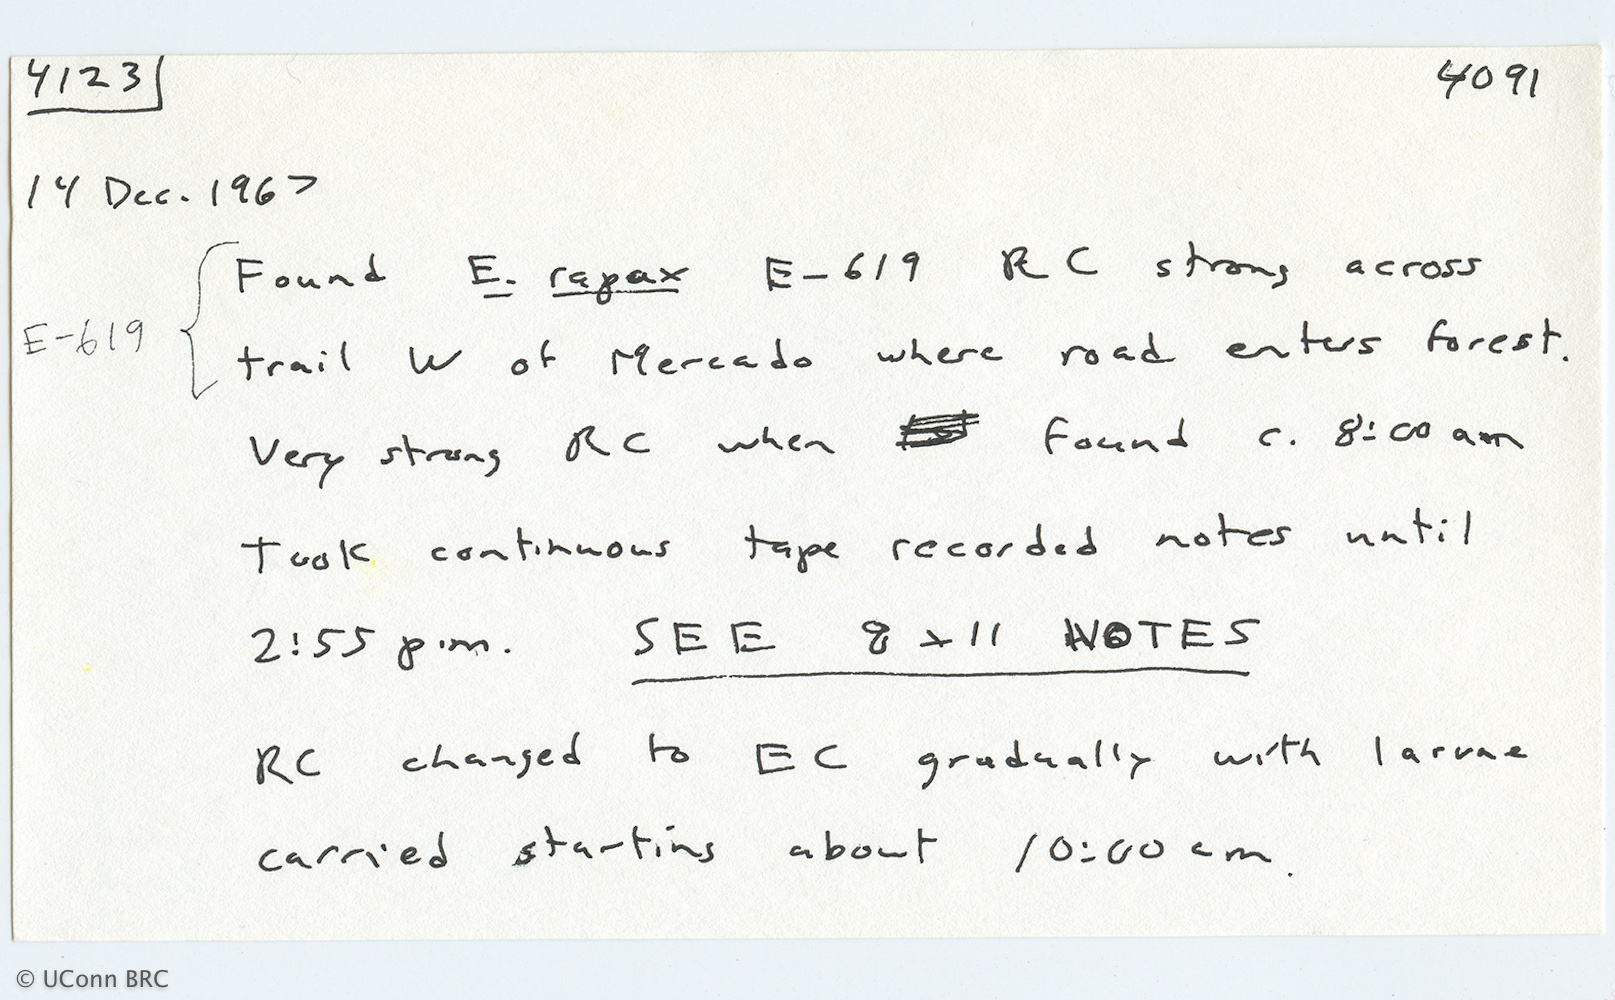 4123 4091
14 Dec. 1967
Found E. rapax E-619 RC strong across
E-619
trail W of Mercado where road enters forest.
Very strong RC when found c. 8:00 am
Took continuous tape recorded notes until
2:55 p.m. SEE 8 x 11 NOTES
RC changed to EC gradually with larvae
carried starting about 10:00 am.
© UConn BRC